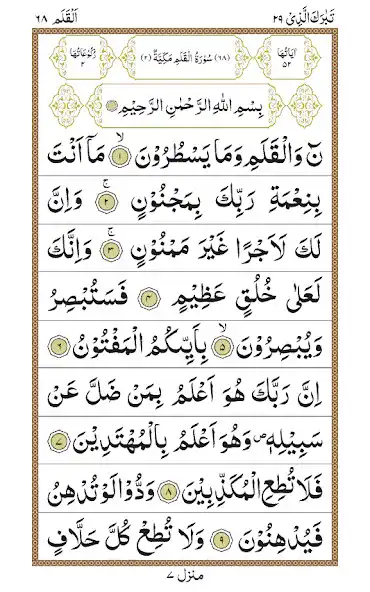 تَبٰرَكَ الَّذِیْ ٢٩
اَلْقَلَم ٦٨
اٰیَاتُهَا ٥٢
(٦٨) سُوْرَةُ الْقَلَمِ مَكِّیَّةٌ (٢)
رُكُوْعَاتُهَا ٢
بِسْمِ اللهِ الرَّحْمٰنِ الرَّحِیْمِ
نٓ وَالْقَلَمِ وَمَا یَسْطُرُوْنَ ۙ‏﴿١﴾ مَاۤ اَنْتَ
بِنِعْمَةِ رَبِّكَ بِمَجْنُوْنٍ ۚ‏﴿٢﴾ وَاِنَّ
لَكَ لَاَجْرًا غَیْرَ مَمْنُوْنٍ ۚ‏﴿٣﴾ وَاِنَّكَ
لَعَلٰی خُلُقٍ عَظِیْمٍ ﴿٤﴾ فَسَتُبْصِرُ
وَیُبْصِرُوْنَ ۙ‏﴿٥﴾ بِاَیِّىكُمُ الْمَفْتُوْنُ ﴿٦﴾
اِنَّ رَبَّكَ هُوَ اَعْلَمُ بِمَنْ ضَلَّ عَنْ
سَبِیْلِهٖ ۪ وَهُوَ اَعْلَمُ بِالْمُهْتَدِیْنَ ﴿٧﴾
فَلَا تُطِعِ الْمُكَذِّبِیْنَ ﴿٨﴾ وَدُّوْا لَوْ تُدْهِنُ
فَیُدْهِنُوْنَ ﴿٩﴾ وَلَا تُطِعْ كُلَّ حَلَّافٍ
منزل ٧